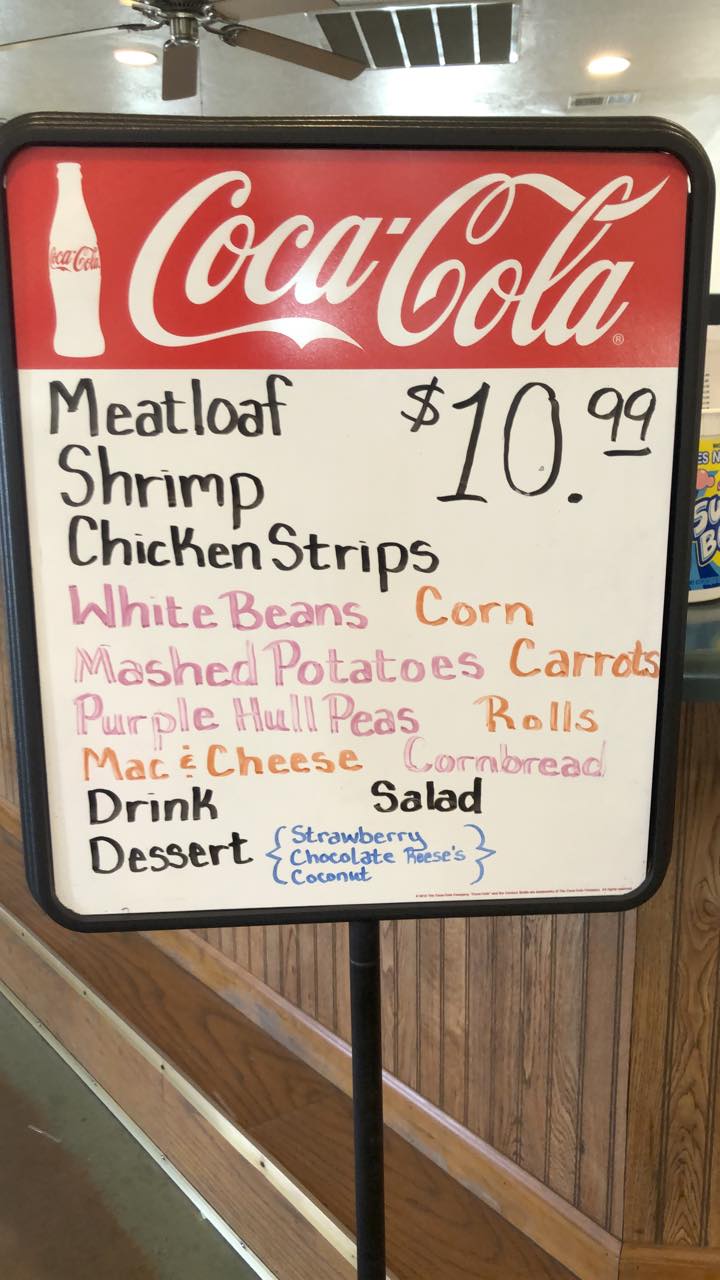 Coca-Cola
Coca-Cola®
Meatloaf $10.99
Shrimp
Chicken Strips
White Beans Corn
Mashed Potatoes Carrots
Purple Hull Peas Rolls
Mac & Cheese Cornbread
Drink Salad
Dessert { Strawberry
Chocolate Reese's
Coconut }